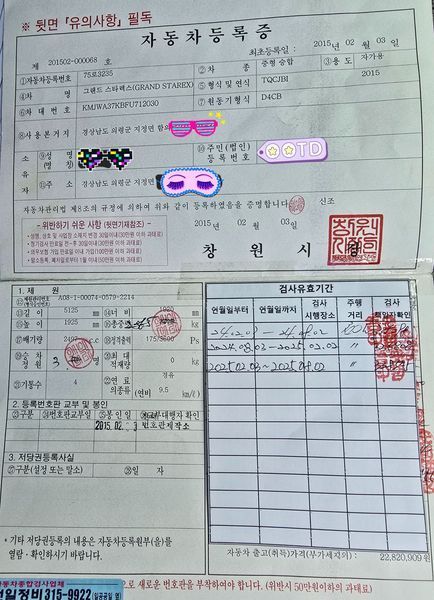 ※ 뒷면 「유의사항」 필독
자동차등록증
제 201502-000068 호
최초등록일 : 2015 년 02 월 03 일
①자동차등록번호 75로3235 ②차종 중형 승합 ③용도 자가용
④차명 그랜드 스타렉스(GRAND STAREX) ⑤형식 및 연식 TQCJBI 2015
⑥차대번호 KMJWA37KBFU712030 ⑦원동기형식 D4CB
⑧사용본거지 경상남도 의령군 지정면
소유자 ⑨성명(명칭) ⑩주민(법인)등록번호
OOTD
⑪주소 경상남도 의령군 지정면
자동차관리법 제8조의 규정에 의하여 위와 같이 등록하였음을 증명합니다. 신조
- 위반하기 쉬운 사항 (뒷면기재참조) -
2015 년 02 월 03 일
창원시
1. 제원
A08-1-00074-0579-2214
⑬길이 5125 mm ⑭너비 1920 mm
⑮높이 1925 mm ⑯총중량
⑰배기량 2497 c.c ⑱정격출력 175/3600 Ps
⑲승차정원 3 명 ⑳최대적재량 0
㉑기통수 4 ㉒연료의종류 경유 (연비) 9.5 km/ℓ
2. 등록번호판 교부 및 봉인
㉓구분 ㉔번호판교부일 ㉕봉인일 ㉖교부대행자 확인
2015. 02. 3 번호판제작소
3. 저당권등록사실
㉗구분(설정 또는 말소) ㉘일자
* 기타 저당권등록의 내용은 자동차등록원부(을)를
열람·확인하시기 바랍니다.
검사유효기간
연월일부터 연월일까지 검사시행장소 주행거리 검사책임자확인
2024.08.03 - 2025.02.02 〃
2025.02.03 - 2025.08.02 〃
자동차 출고(취득)가격(부가세제외) : 22,820,909원
으로 새로운 번호판을 부착하여야 합니다. (위반시 50만원이하의 과태료)
자동차종합검사업체
정비 315-9922 (일공공일 옆)